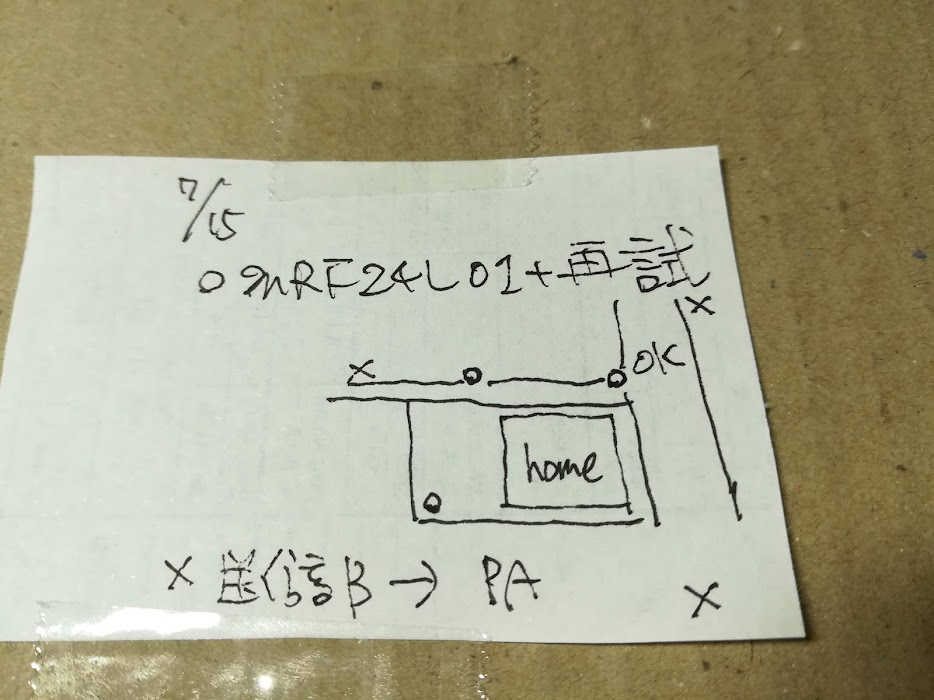 7/15
○ nRF24L01+再試
×
OK
×
home
× 送信B → PA
×